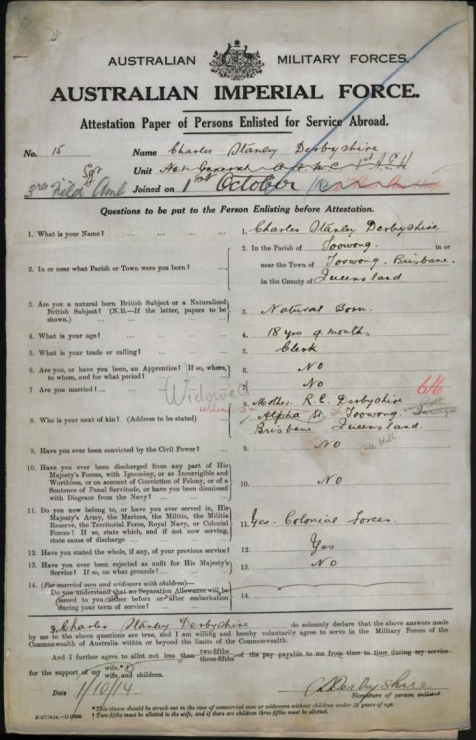 AUSTRALIAN MILITARY FORCES.
AUSTRALIAN IMPERIAL FORCE.
Attestation Paper of Persons Enlisted for Service Abroad.
No. 15 Name Charles Stanley Derbyshire
Sgt Unit
3rd Field Amb Joined on 1st October
Questions to be put to the Person Enlisting before Attestation.
1. What is your Name? 1. Charles Stanley Derbyshire
2. In or near what Parish or Town were you born? 2. In the Parish of Toowong. in or
near the Town of Toowong, Brisbane.
in the County of Queensland
3. Are you a natural born British Subject or a Naturalized
British Subject? (N.B.—If the latter, papers to be
shown.) 3. Natural Born.
4. What is your age? 4. 18 yrs 9 months
5. What is your trade or calling? 5. Clerk
6. Are you, or have you been, an Apprentice? If so, where,
to whom, and for what period? 6. No
7. Are you married? 7. No
Widowed 616
8. Who is your next of kin? (Address to be stated) 8. Mother. R.E. Derbyshire
Alpha St. Toowong.
Brisbane Queensland.
9. Have you ever been convicted by the Civil Power? 9. No
10. Have you ever been discharged from any part of His
Majesty's Forces, with Ignominy, or as Incorrigible and
Worthless, or on account of Conviction of Felony, or of a
Sentence of Penal Servitude, or have you been dismissed
with Disgrace from the Navy? 10. No
11. Do you now belong to, or have you ever served in, His
Majesty's Army, the Marines, the Militia, the Militia
Reserve, the Territorial Force, Royal Navy, or Colonial
Forces? If so, state which, and if not now serving,
state cause of discharge 11. Yes. Colonial Forces.
12. Have you stated the whole, if any, of your previous service? 12. Yes
13. Have you ever been rejected as unfit for His Majesty's
Service? If so, on what grounds? 13. No
14. (For married men and widowers with children)—
Do you understand that no Separation Allowance will be
issued to you either before or after embarkation
during your term of service? 14.
I, Charles Stanley Derbyshire do solemnly declare that the above answers made
by me to the above questions are true, and I am willing and hereby voluntarily agree to serve in the Military Forces of the
Commonwealth of Australia within or beyond the limits of the Commonwealth.
And I further agree to allot not less than two-fifths three-fifths of the pay payable to me from time to time during my service
for the support of my wife.* wife and children.
Date 1/10/14 C S Derbyshire
Signature of person enlisted.
*This clause should be struck out in the case of unmarried men or widowers without children under 18 years of age.
†Two-fifths must be allotted to the wife, and if there are children three-fifths must be allotted.